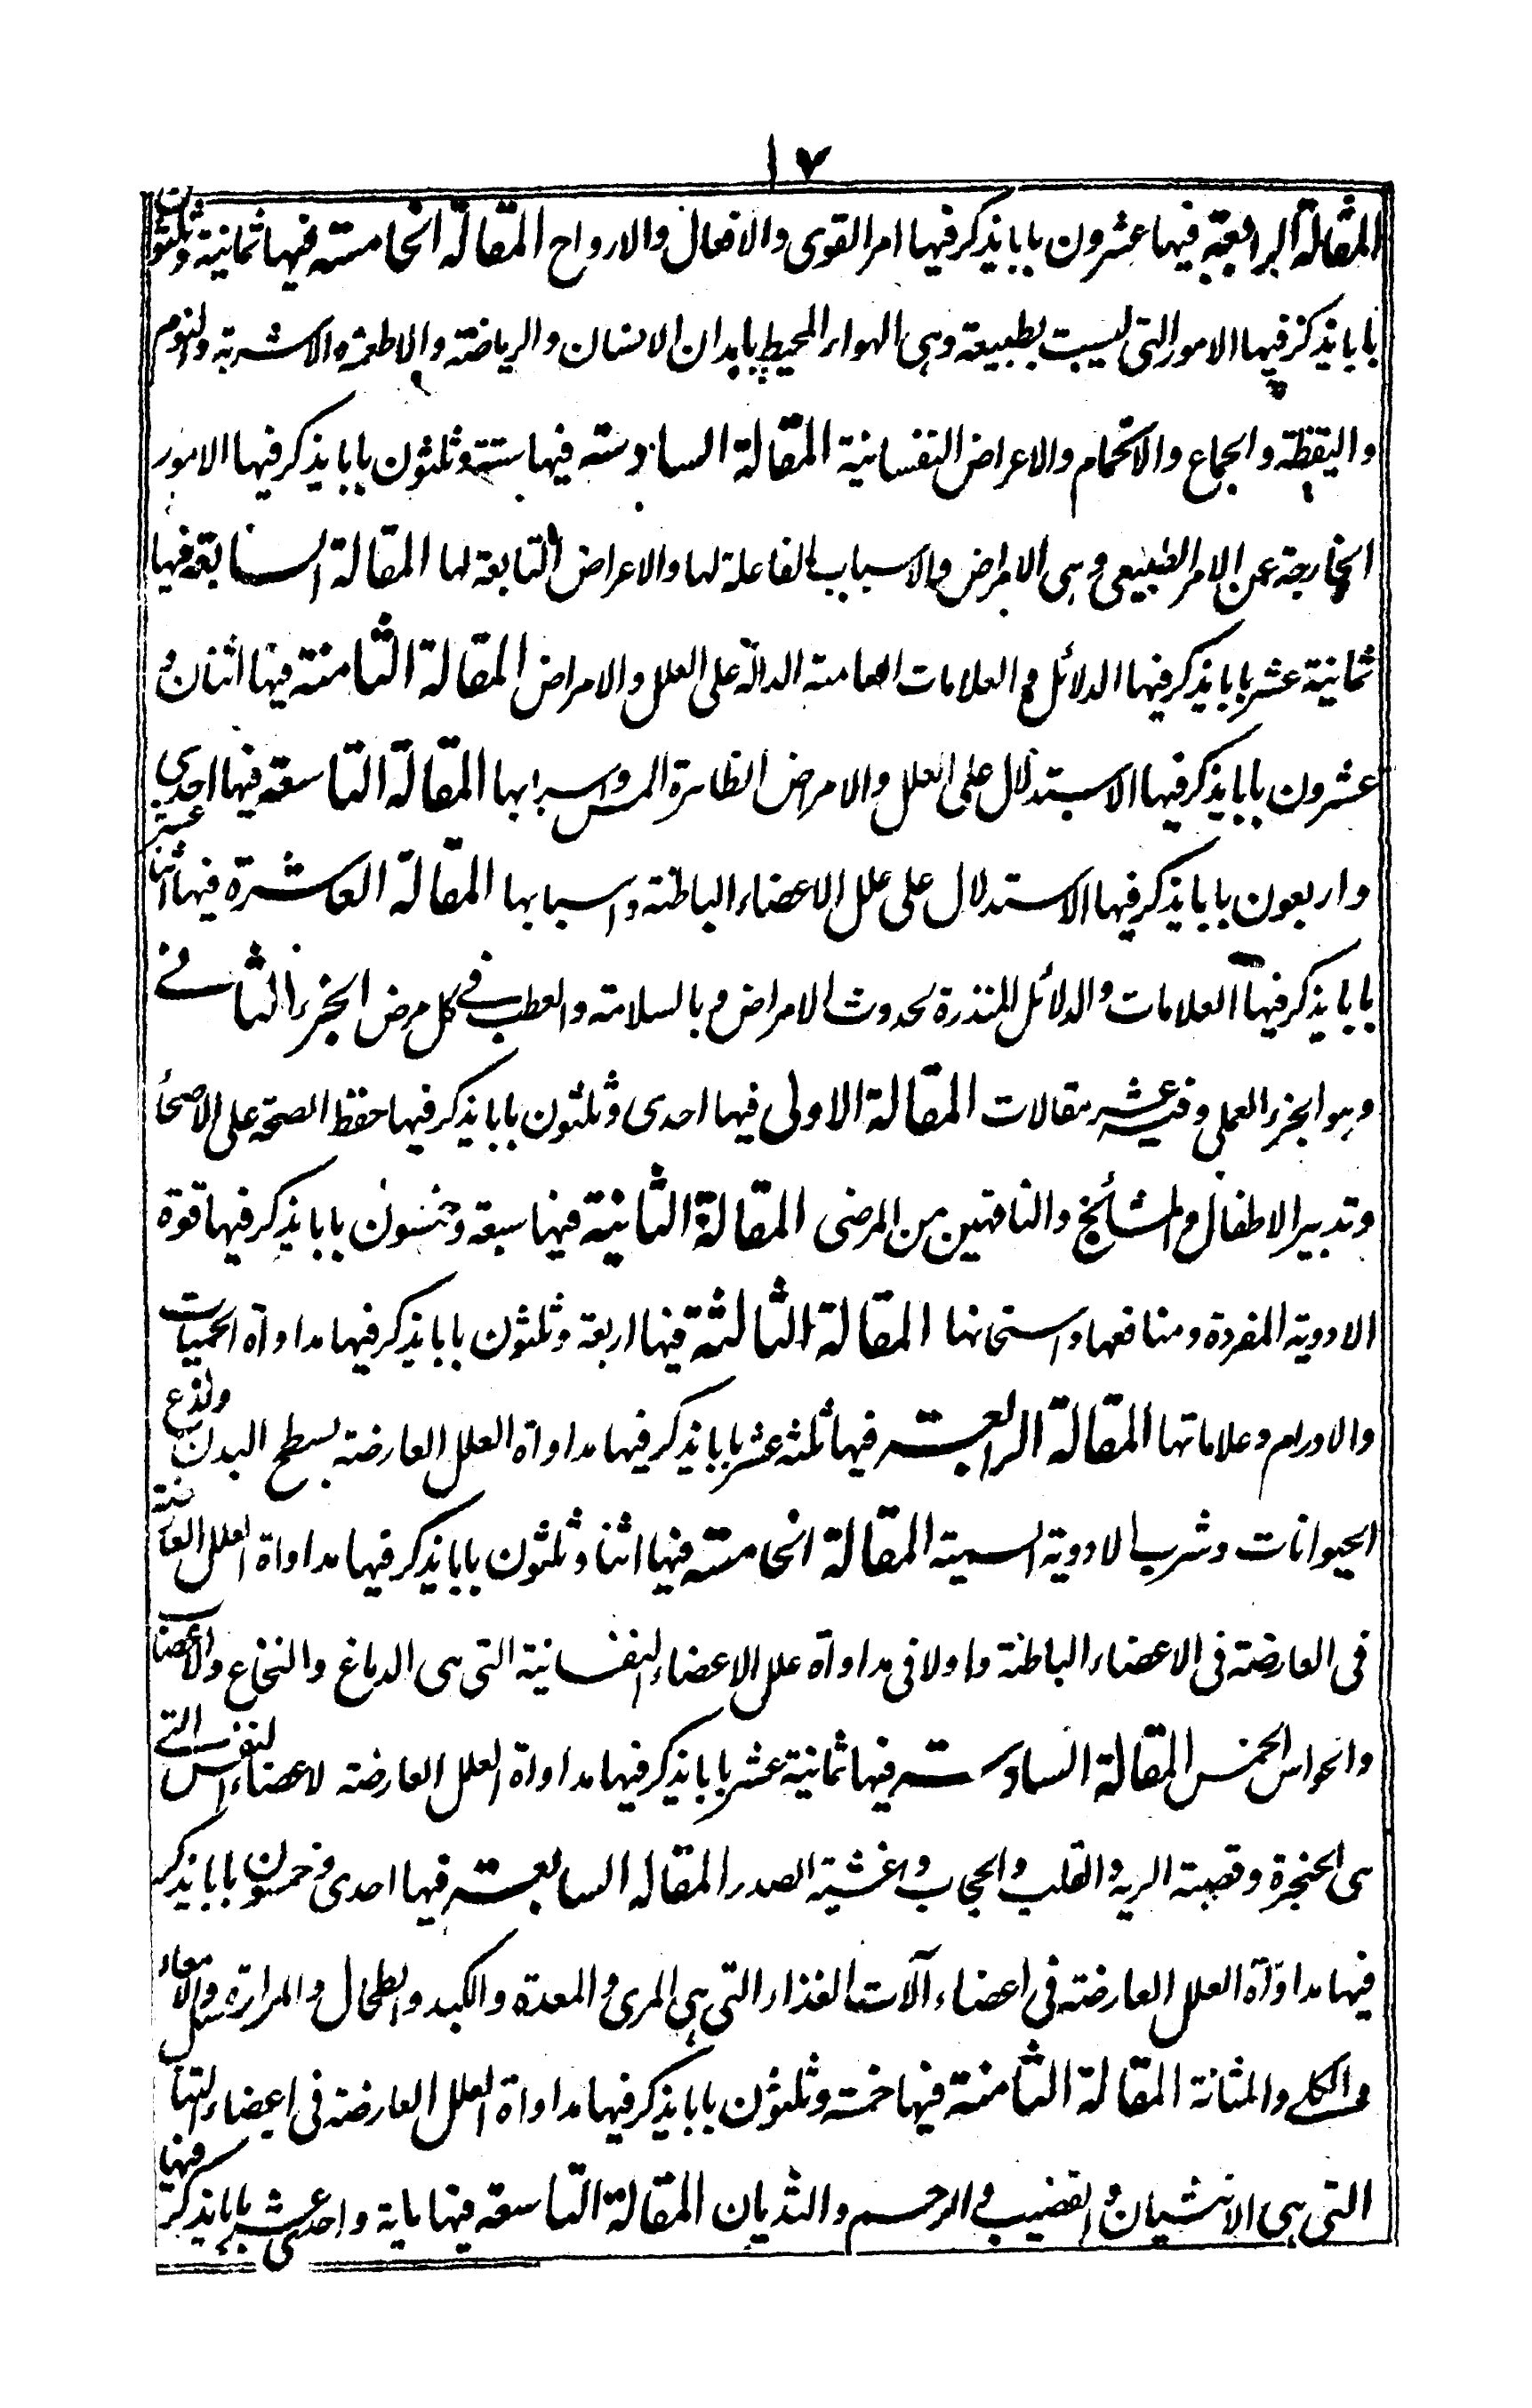 ١٧
المقالة الرابعة فيها عشرون بابا يذكر فيها امر القوى والافعال والارواح المقالة الخامسة فيها ثمانية وثلثون
بابا يذكر فيها الامور التى ليست بطبيعة وهى الهواء المحيط بابدان الانسان والرياضة والاطعمة والاشربة والنوم
واليقظة والجماع والاستحمام والاعراض النفسانية المقالة السادسة فيها ستة وثلثون بابا يذكر فيها الامور
الخارجة عن الامر الطبيعى وهى الامراض والاسباب الفاعلة لها والاعراض التابعة لها المقالة السابعة فيها
ثمانية عشر بابا يذكر فيها الدلائل و العلامات العامة الدالة على العلل والامراض المقالة الثامنة فيها اثنان و
عشرون بابا يذكر فيها الاستدلال على العلل والامراض الظاهرة للحس واسبابها المقالة التاسعة فيها احدى
واربعون بابا يذكر فيها الاستدلال على علل الاعضاء الباطنة واسبابها المقالة العاشرة فيها اثنا عشر
بابا يذكر فيها العلامات والدلائل المنذرة بحدوث الامراض و بالسلامة والعطب فى كل مرض الجزء الثانے
وهو الجزء العملى وفيه عشر مقالات المقالة الاولى فيها احدى وثلثون بابا يذكر فيها حفظ الصحة على الاصحأ
وتدبير الاطفال والمشائخ والناقهين من المرضى المقالة الثانية فيها سبعة وخمسون بابا يذكر فيها قوة
الادوية المفردة ومنافعها وامتحانها المقالة الثالثة فيها اربعة وثلثون بابا يذكر فيها مداواة الحميات
والاورام وعلاماتها المقالة الرابعة فيها ثلثه عشر بابا يذكر فيها مداواة العلل العارضة بسطح البدن ولذع
الحيوانات وشرب الادوية السمية المقالة الخامسة فيها اثنا وثلثون بابا يذكر فيها مداواة العلل
فى العارضة فى الاعضاء الباطنة واولا فى مداواة علل الاعضاء النفسانية التى هى الدماغ والنخاع والاعصاب
والحواس الخمس المقالة السادسة فيها ثمانية عشر بابا يذكر فيها مداواة العلل العارضة لاعضاء النفس التے
هى الحنجرة وقصبة الرية والقلب والحجاب واغشية الصدر المقاله السابعة فيها احدى وخمسون بابا يذكر
فيها مداواة العلل العارضة فى اعضاء آلات الغذاء التى هى المرى والمعدة والكبد والطحال والمرارة والامعاء
والكلے والمثانة المقالة الثامنة فيها خمسة وثلثون بابا يذكر فيها مداواة العلل العارضة فى اعضاء
التى هى الانثيان والقضيب والرحم والثديان المقالة التاسعة فيها ماية واحدى عشر بابا يذكر فيها